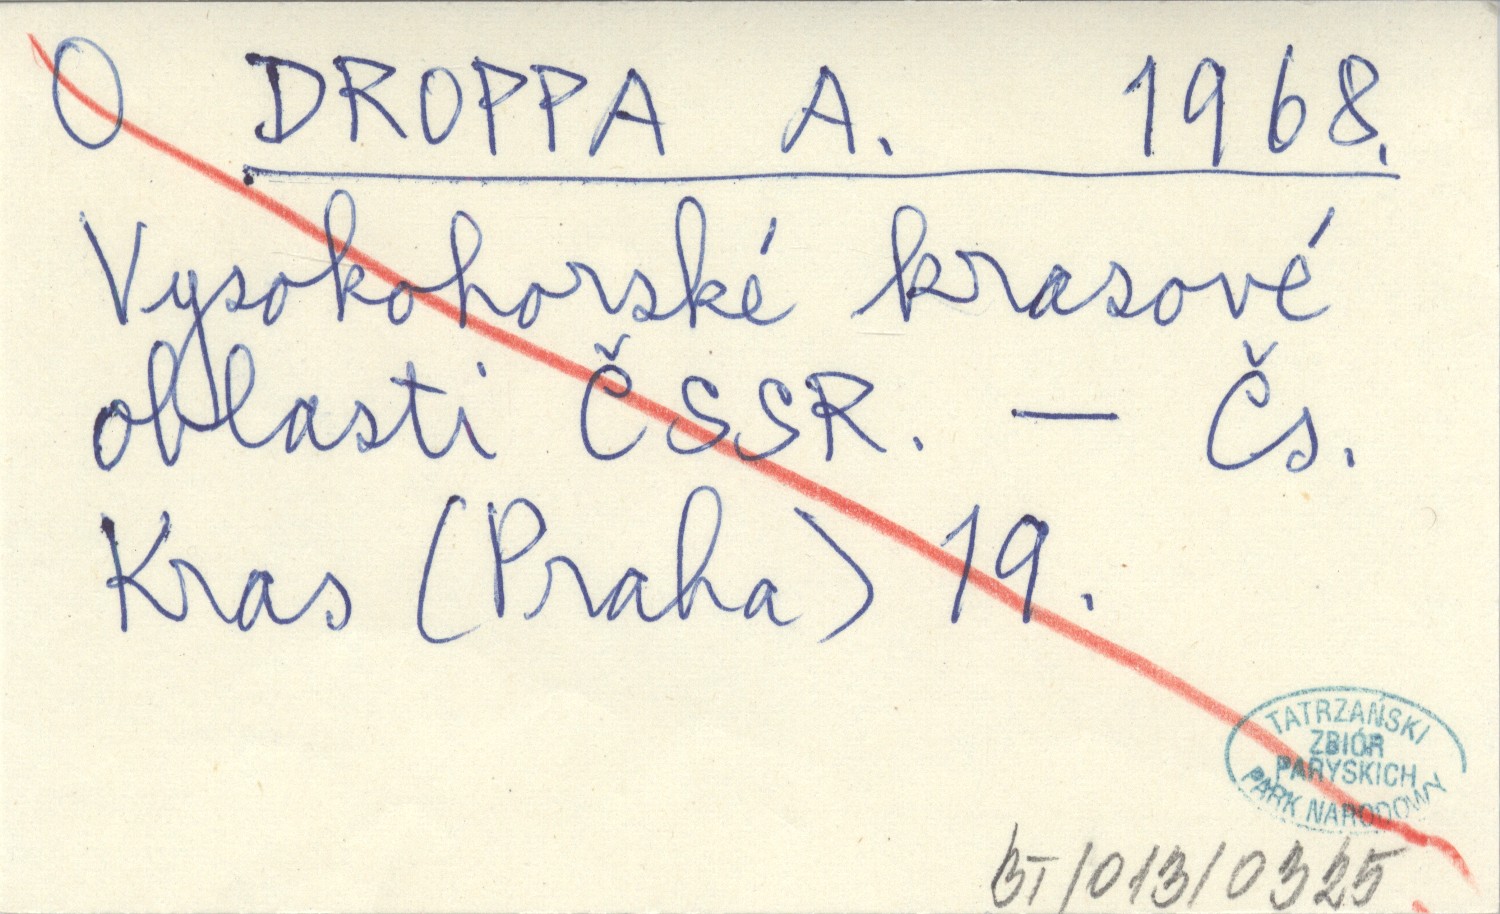 O DROPPA A. 1968.
Vysokohorské krasové
oblasti ČSSR. — Čs.
Kras (Praha) 19.
TATRZAŃSKI
ZBIÓR
PARYSKICH
PARK NARODOWY
BT/013/0325